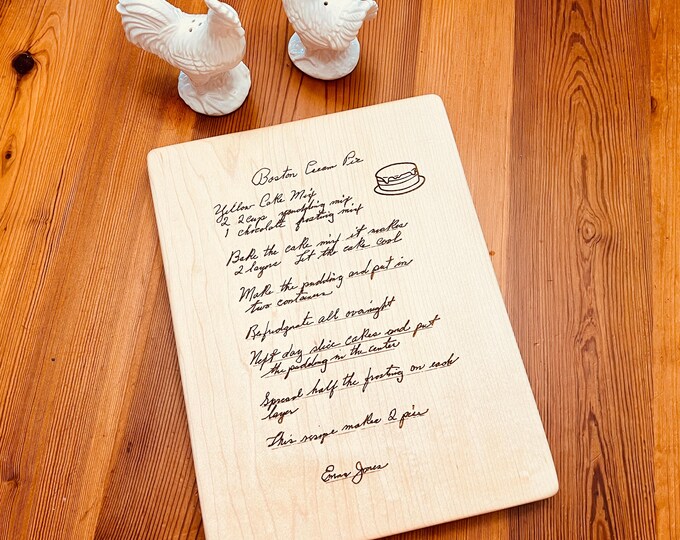 Boston Cream Pie
Yellow Cake Mix
2 2cup pudding mix
1 chocolate frosting mix
Bake the cake mix it makes
2 layers Let the cake cool
Make the pudding and put in
two containers
Refridgrate all overnight
Next day slice cakes and put
the pudding in the center
Spread half the frosting on each
layer
This recipe makes 2 pies
Jones